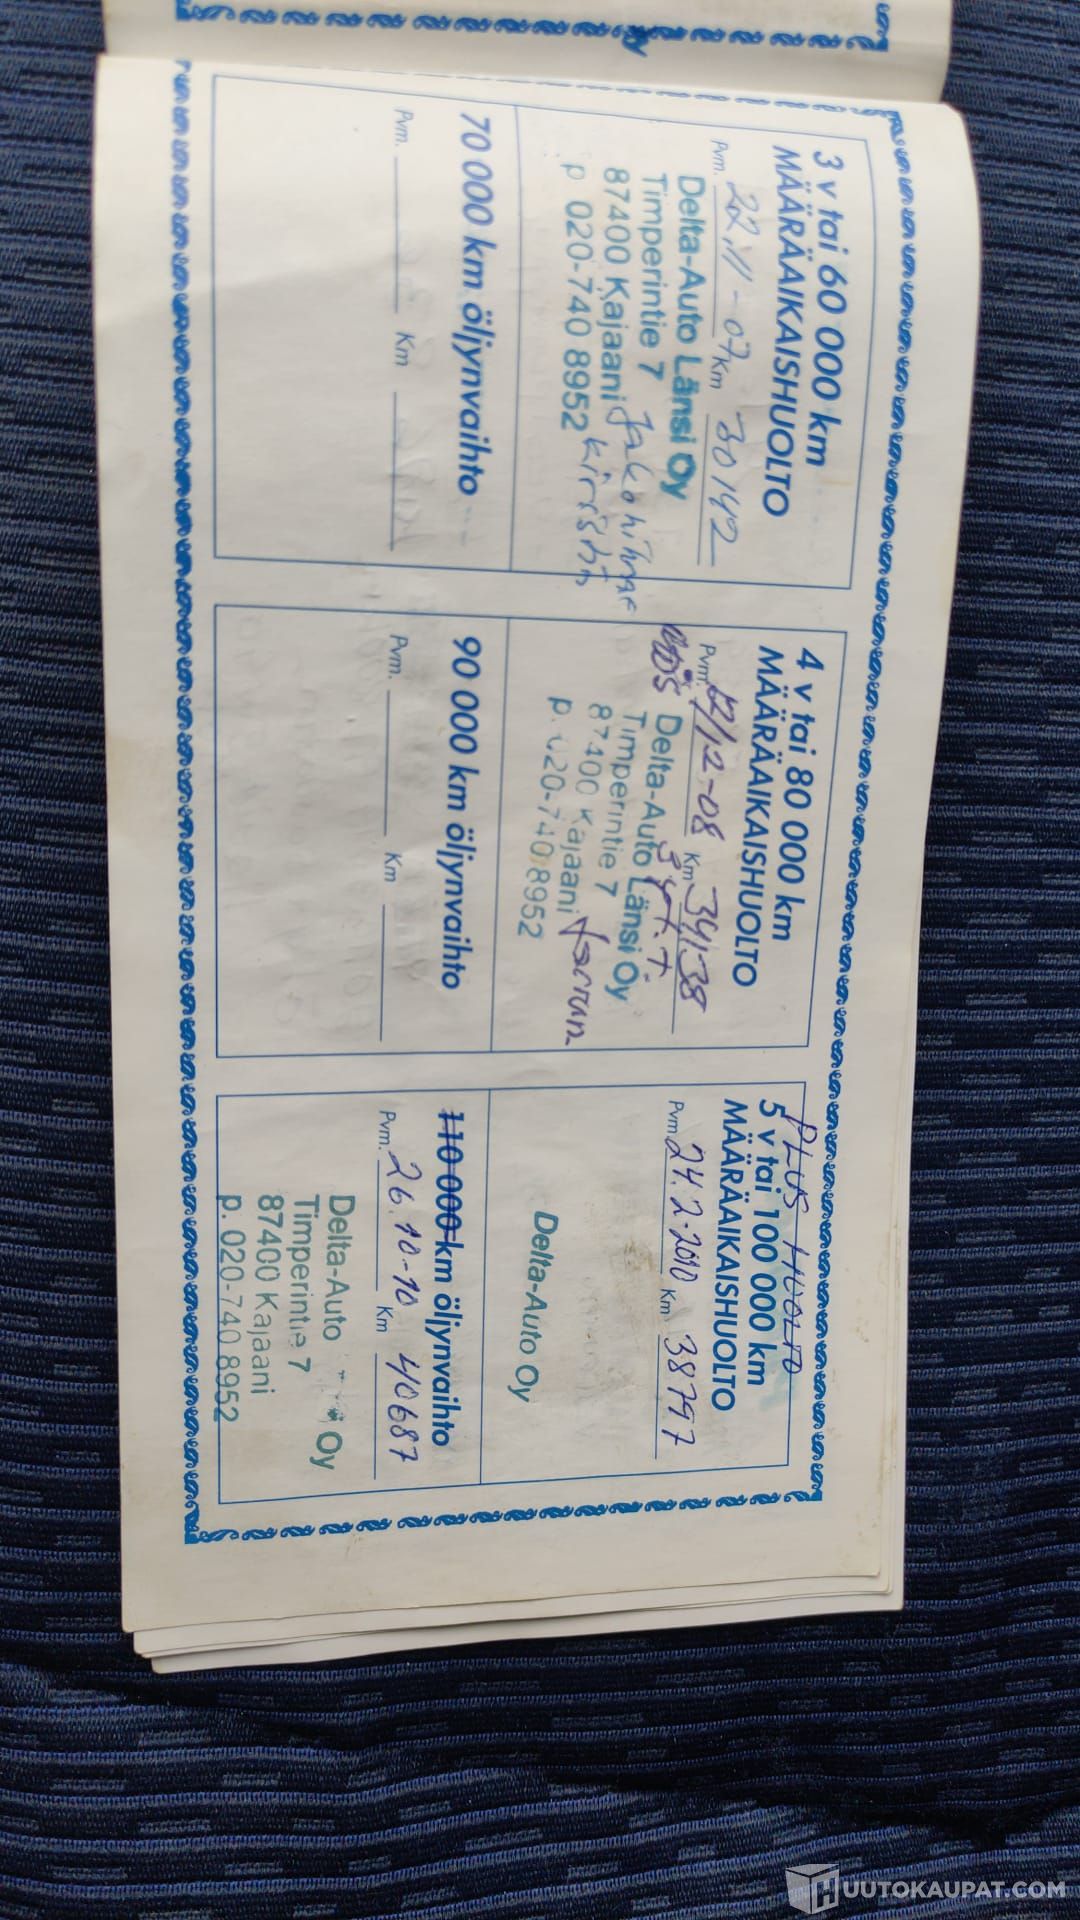 3 v tai 60 000 km
MÄÄRÄAIKAISHUOLTO
Pvm. 22.11-07 Km 30142
Delta-Auto Länsi Oy
Timperintie 7
87400 Kajaani
p 020-740 8952
70 000 km öljynvaihto
Pvm. Km
4 v tai 80 000 km
MÄÄRÄAIKAISHUOLTO
Pvm. 12-08 Km 34138
Delta-Auto Länsi Oy
Timperintie 7
87400 Kajaani
p. 020-740 8952
90 000 km öljynvaihto
Pvm. Km
PLUS HUOLTO
5 v tai 100 000 km
MÄÄRÄAIKAISHUOLTO
Pvm 24.2.2010 Km 38797
Delta-Auto Oy
110 000 km öljynvaihto
Pvm. 26.10-10 Km 40687
Delta-Auto Oy
Timperintie 7
87400 Kajaani
p. 020-740 8952
HUUTOKAUPAT.COM